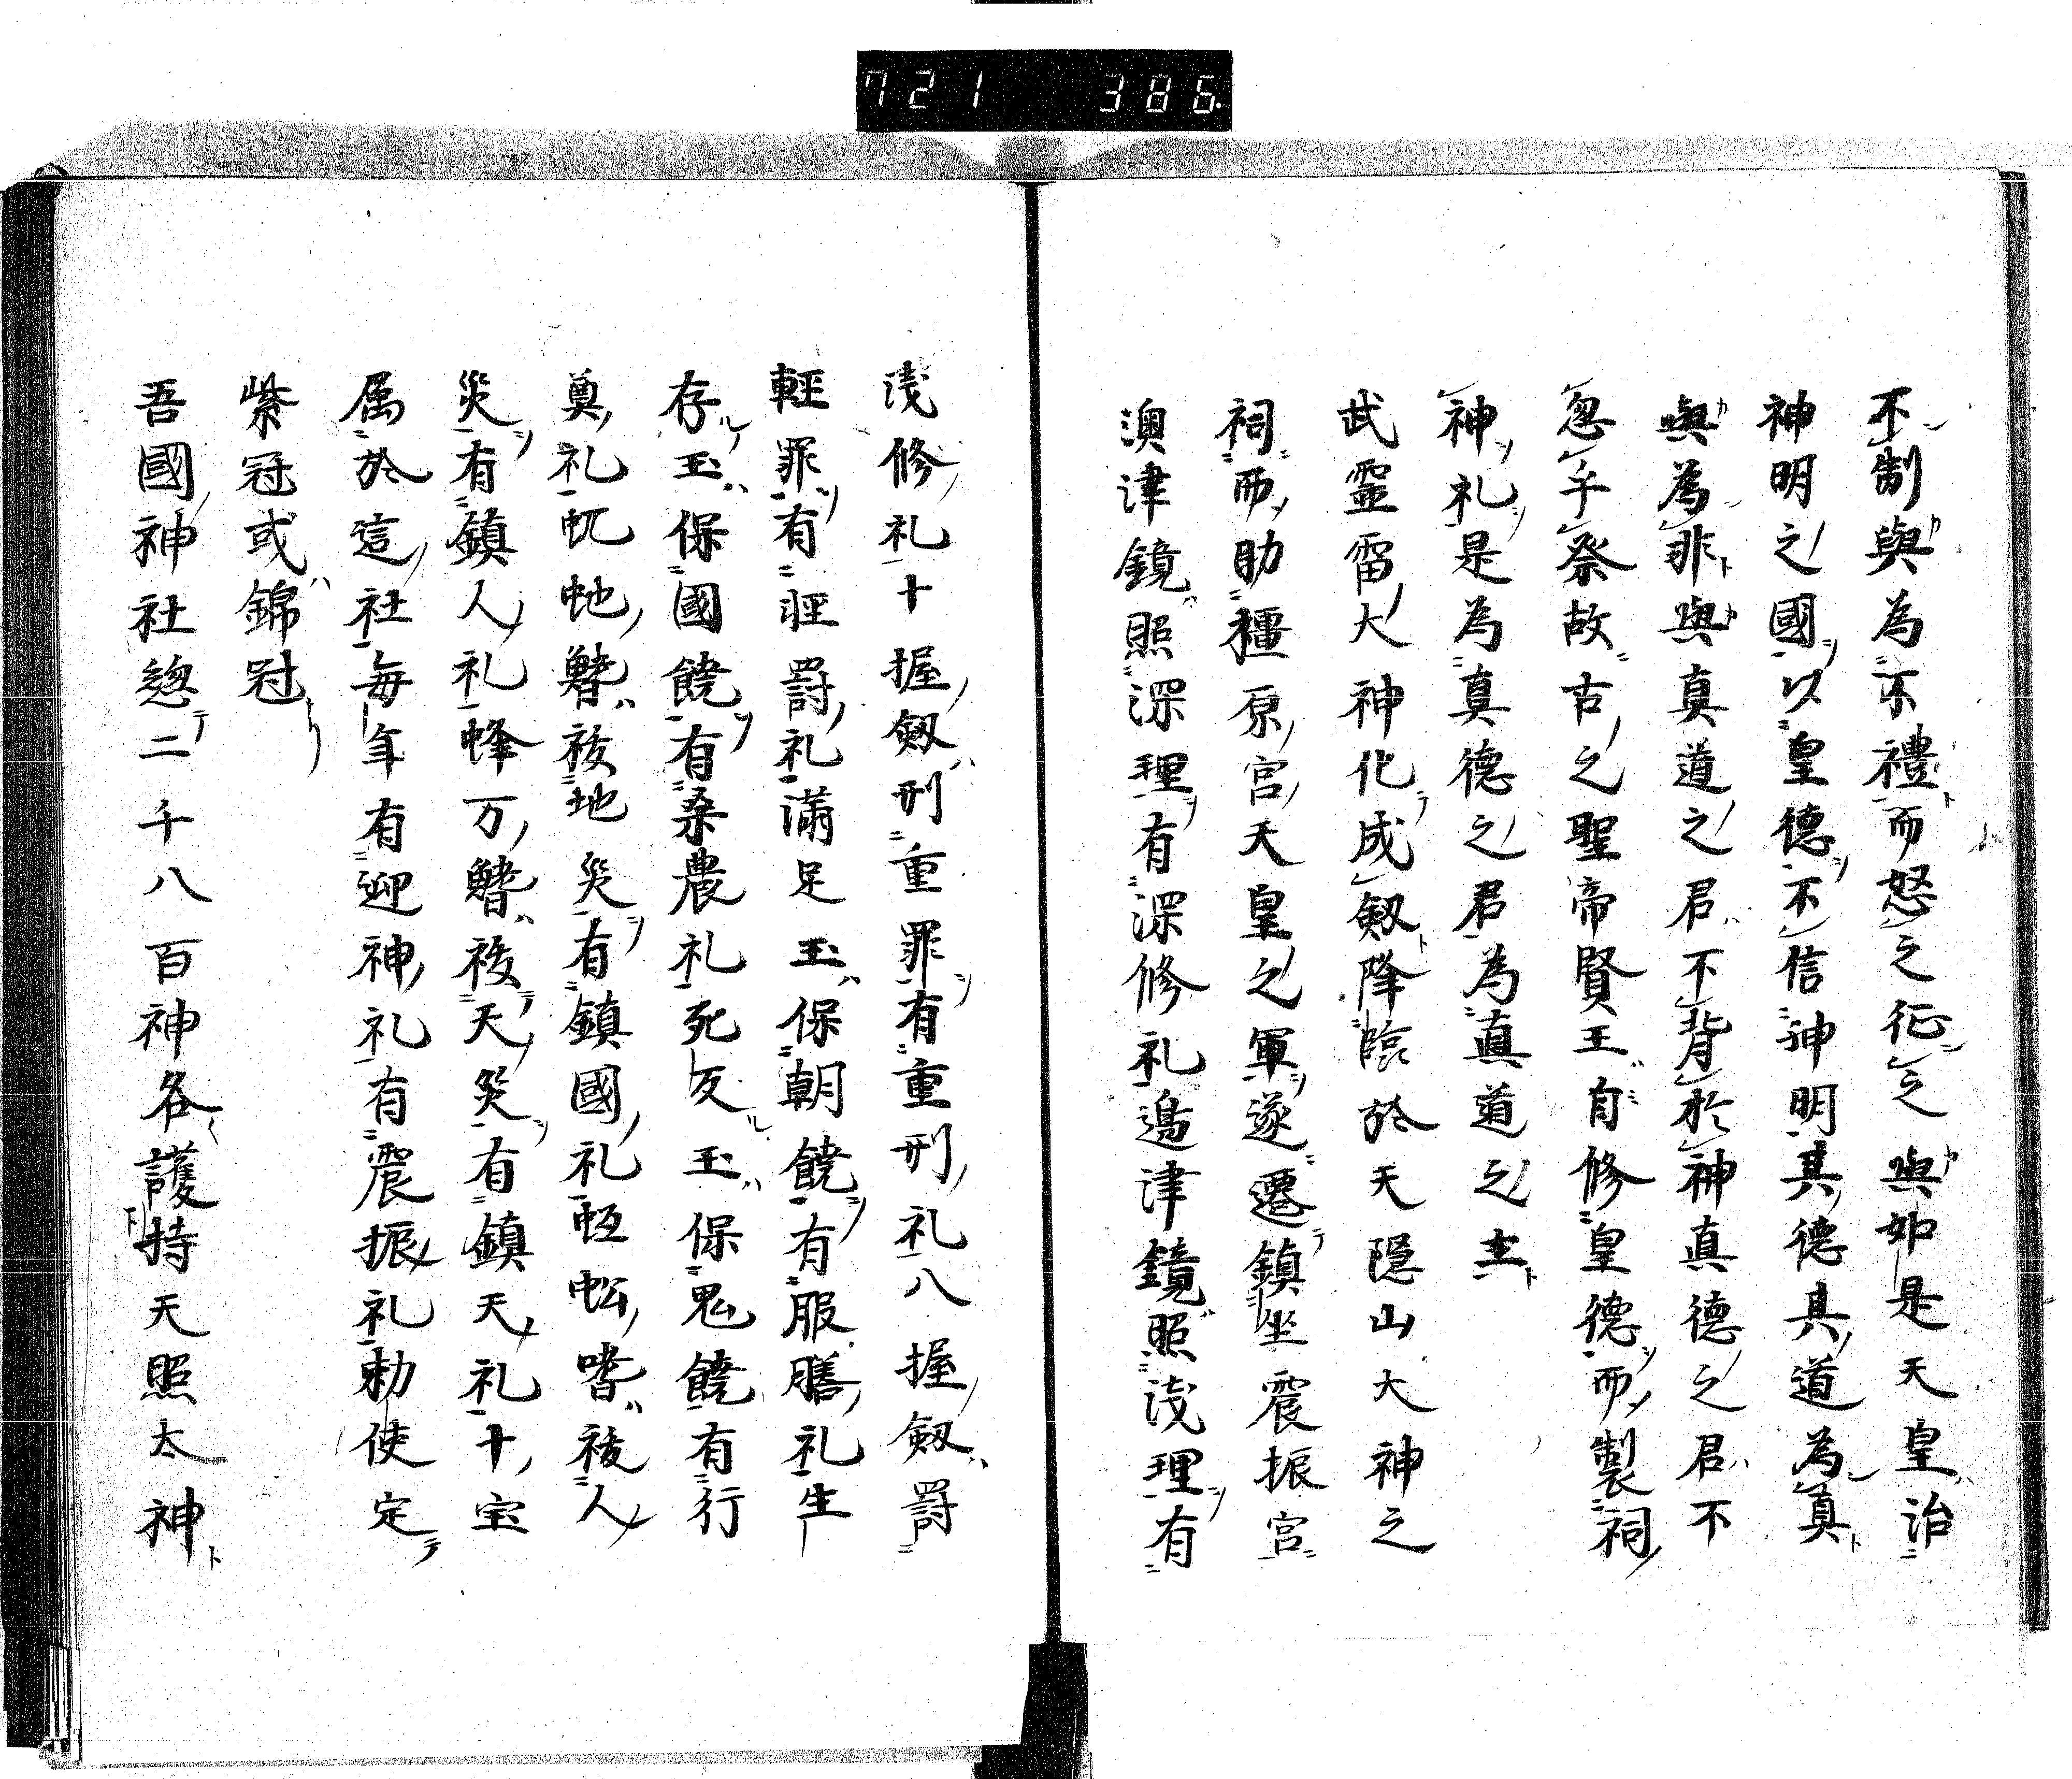 721 386
不制與為不禮而怒之征之與如是天皇治
神明之國以皇德不信神明其德其道為真
與為非與真道之君不背於神真德之君不
忽乎祭故古之聖帝賢王有修皇德而製祠
神礼是為真德之君為真道之主
武靈雷大神化成劔降臨於天隠山大神之
祠而助橿原宮天皇之軍遂遷鎮坐震振宮
澳津鏡照深理有深修礼邉津鏡照浅理有
浅修礼十握劔刑重罪有重刑礼八握劔罸
輕罪有輕罸礼滿足玉保朝饒有服膳礼生
存玉保國饒有桑農礼死反玉保鬼饒有行
奠礼虵祓地災有鎮國礼祓人
災有鎮人礼蜂万祓天災有鎮天礼十宝
属於這社每年有迎神礼有震振礼勅使定
紫冠或錦冠
吾國神社惣二千八百神各護持天照太神